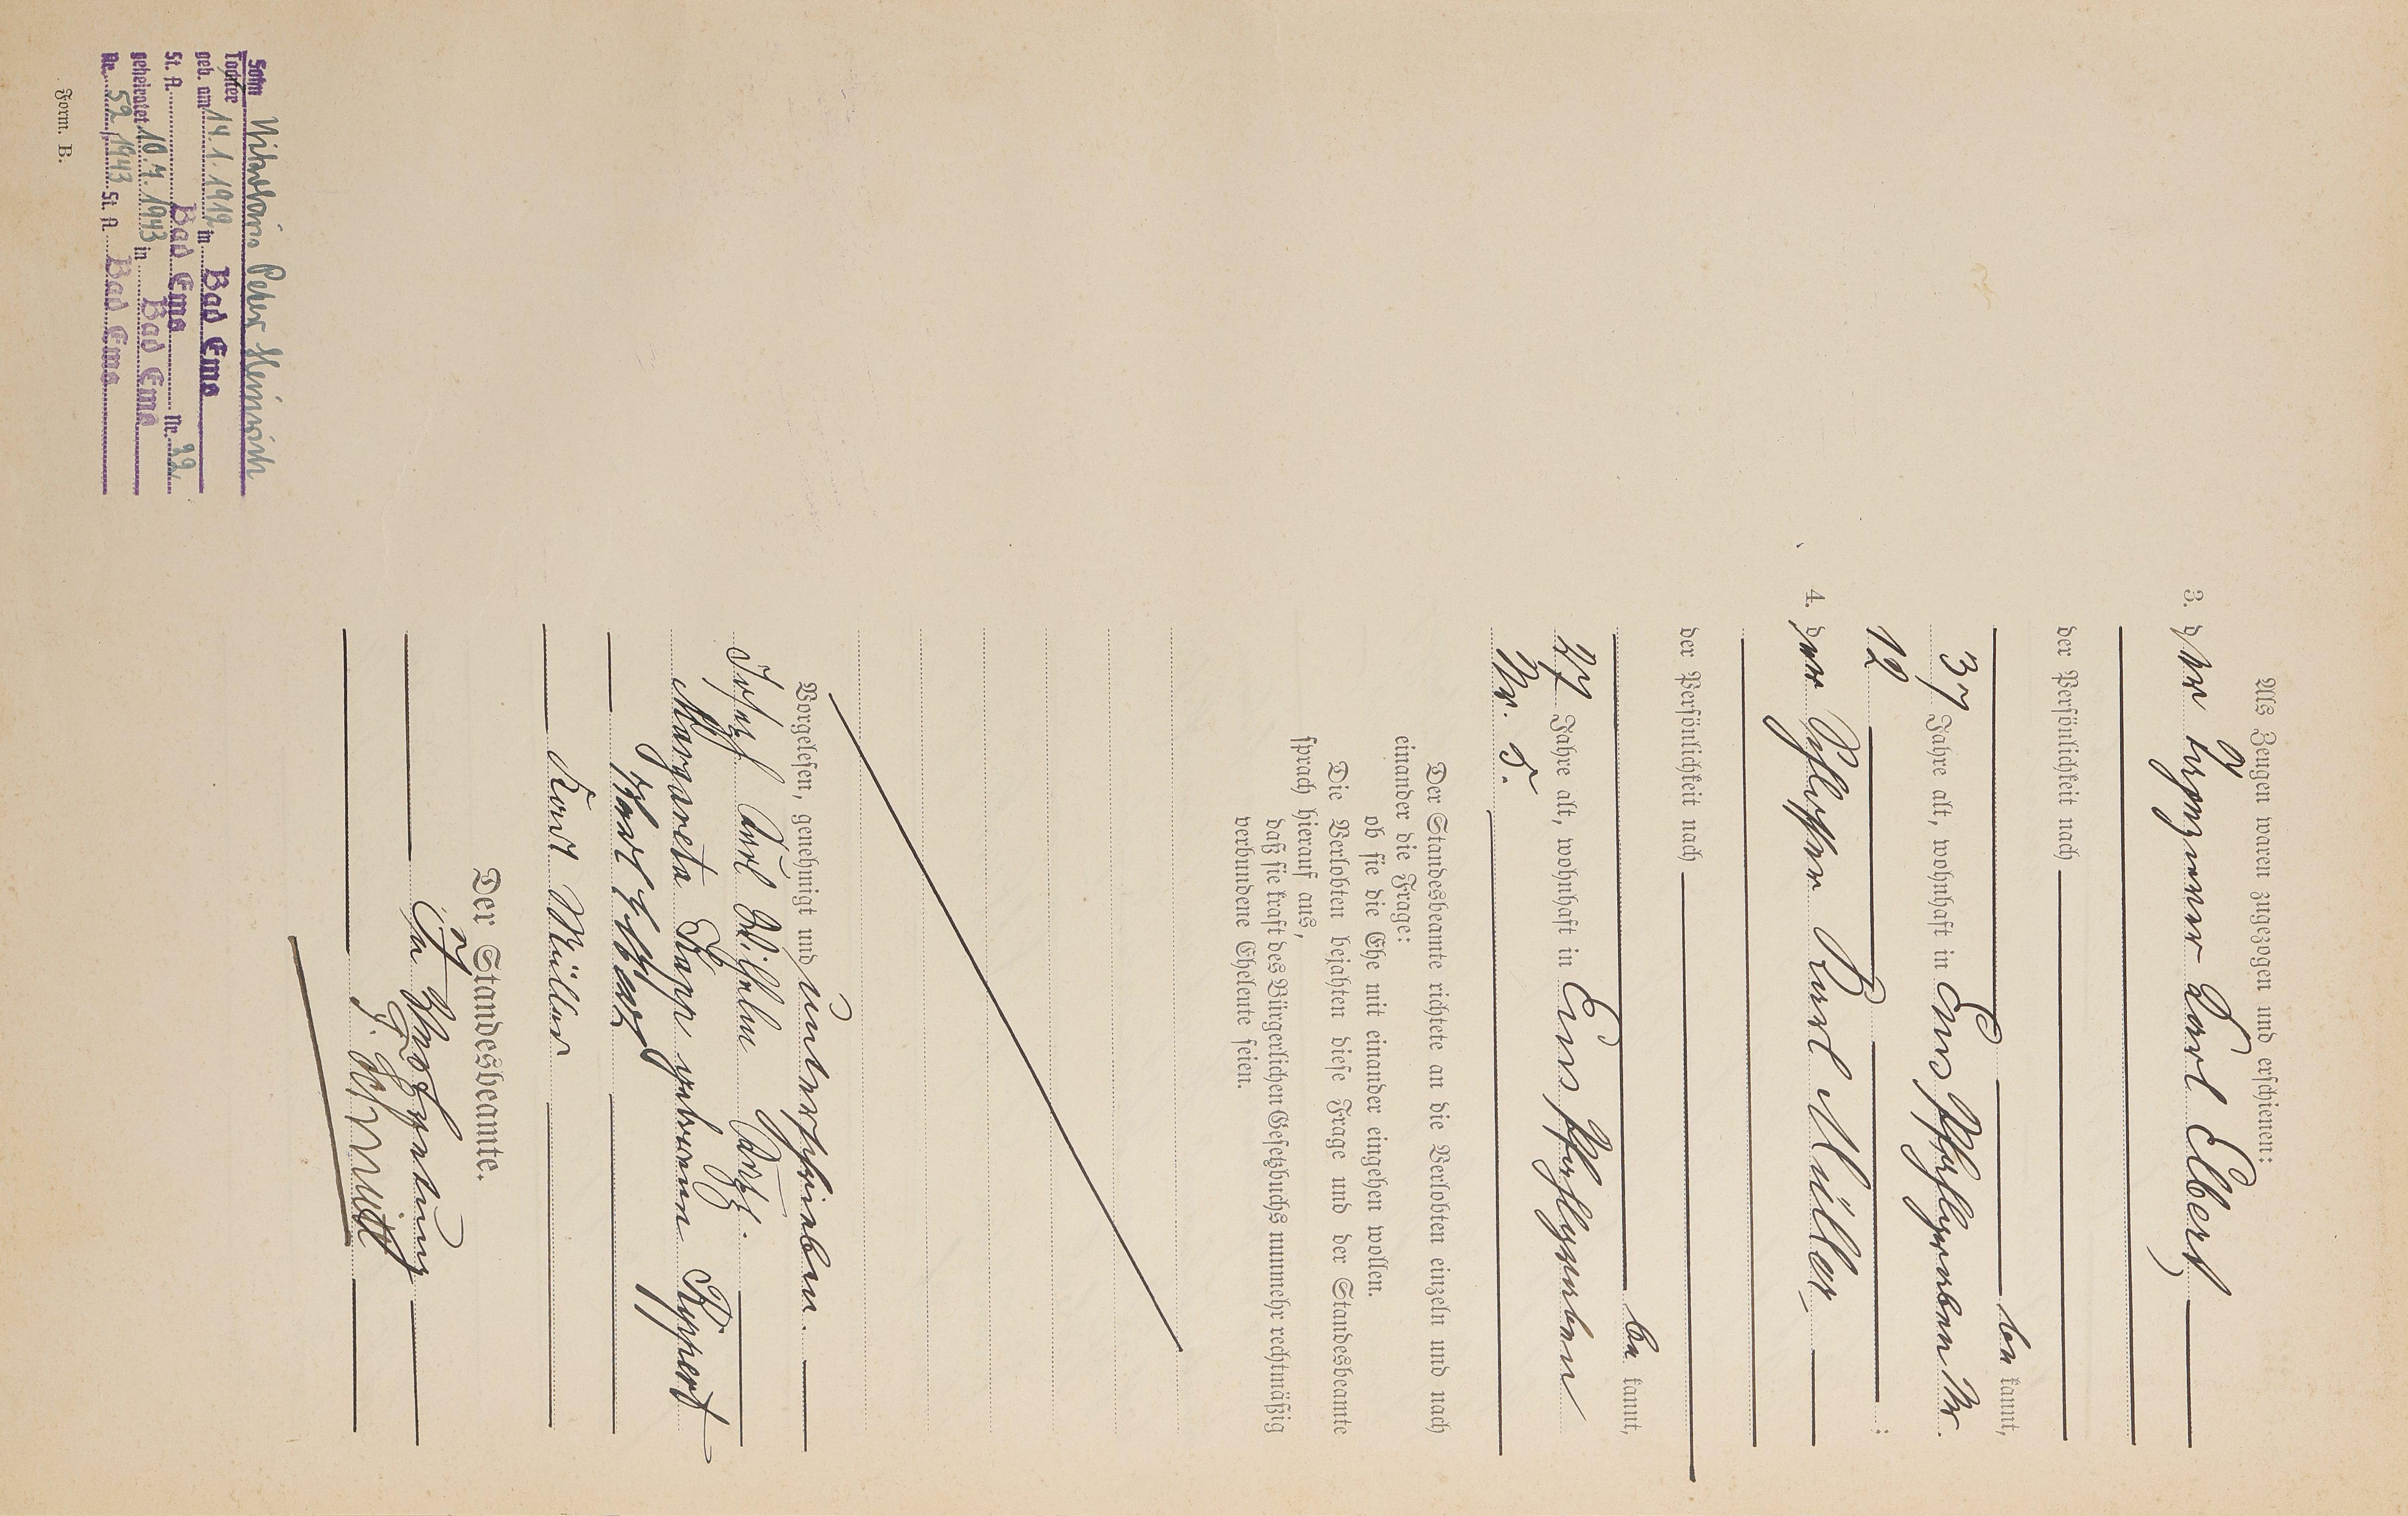 Als Zeugen waren zugezogen und erschienen:
3. der Tagner Karl Elbert,
der Persönlichkeit nach
be kannt,
37 Jahre alt, wohnhaft in Ems Pfahlgraben Nr.
12 ;
4. der Schlosser Karl Müller,
der Persönlichkeit nach
be kannt,
27 Jahre alt, wohnhaft in Ems Pfahlgraben
Nr. 5.
Der Standesbeamte richtete an die Verlobten einzeln und nach
einander die Frage:
ob sie die Ehe mit einander eingehen wollen.
Die Verlobten bejahten diese Frage und der Standesbeamte
sprach hierauf aus,
daß sie kraft des Bürgerlichen Gesetzbuchs nunmehr rechtmäßig
verbundene Eheleute seien.
Vorgelesen, genehmigt und unterschrieben.
Josef Karl Wilhelm
Margareta geborene Rippert
Karl Elbert
Karl Müller
Der Standesbeamte.
In Vertretung
Sohn Peter Heinrich
Tochter
geb. am 14. 1. 1912 in Bad Ems
St. A. Bad Ems Nr.
geheiratet 10. 7. 1943 in Bad Ems
Nr. 52/1943 St. A. Bad Ems
Form. B.